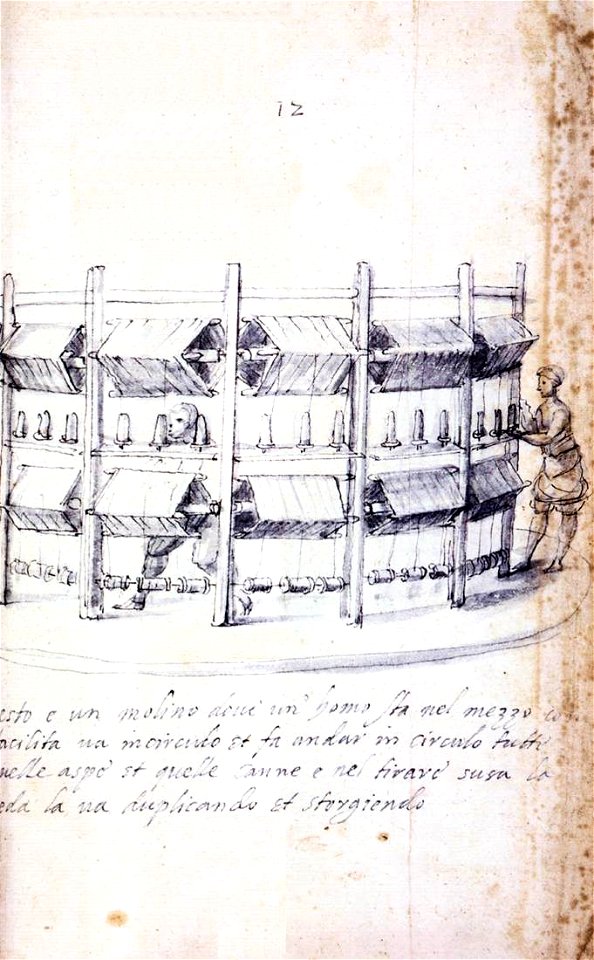 12
esto e un molino dove un' homo sta nel mezzo con
facilita va incirculo et fa andar in circulo tutte
uelle aspe et quelle canne e nel tirare susa la
eda la va duplicando et storgiendo